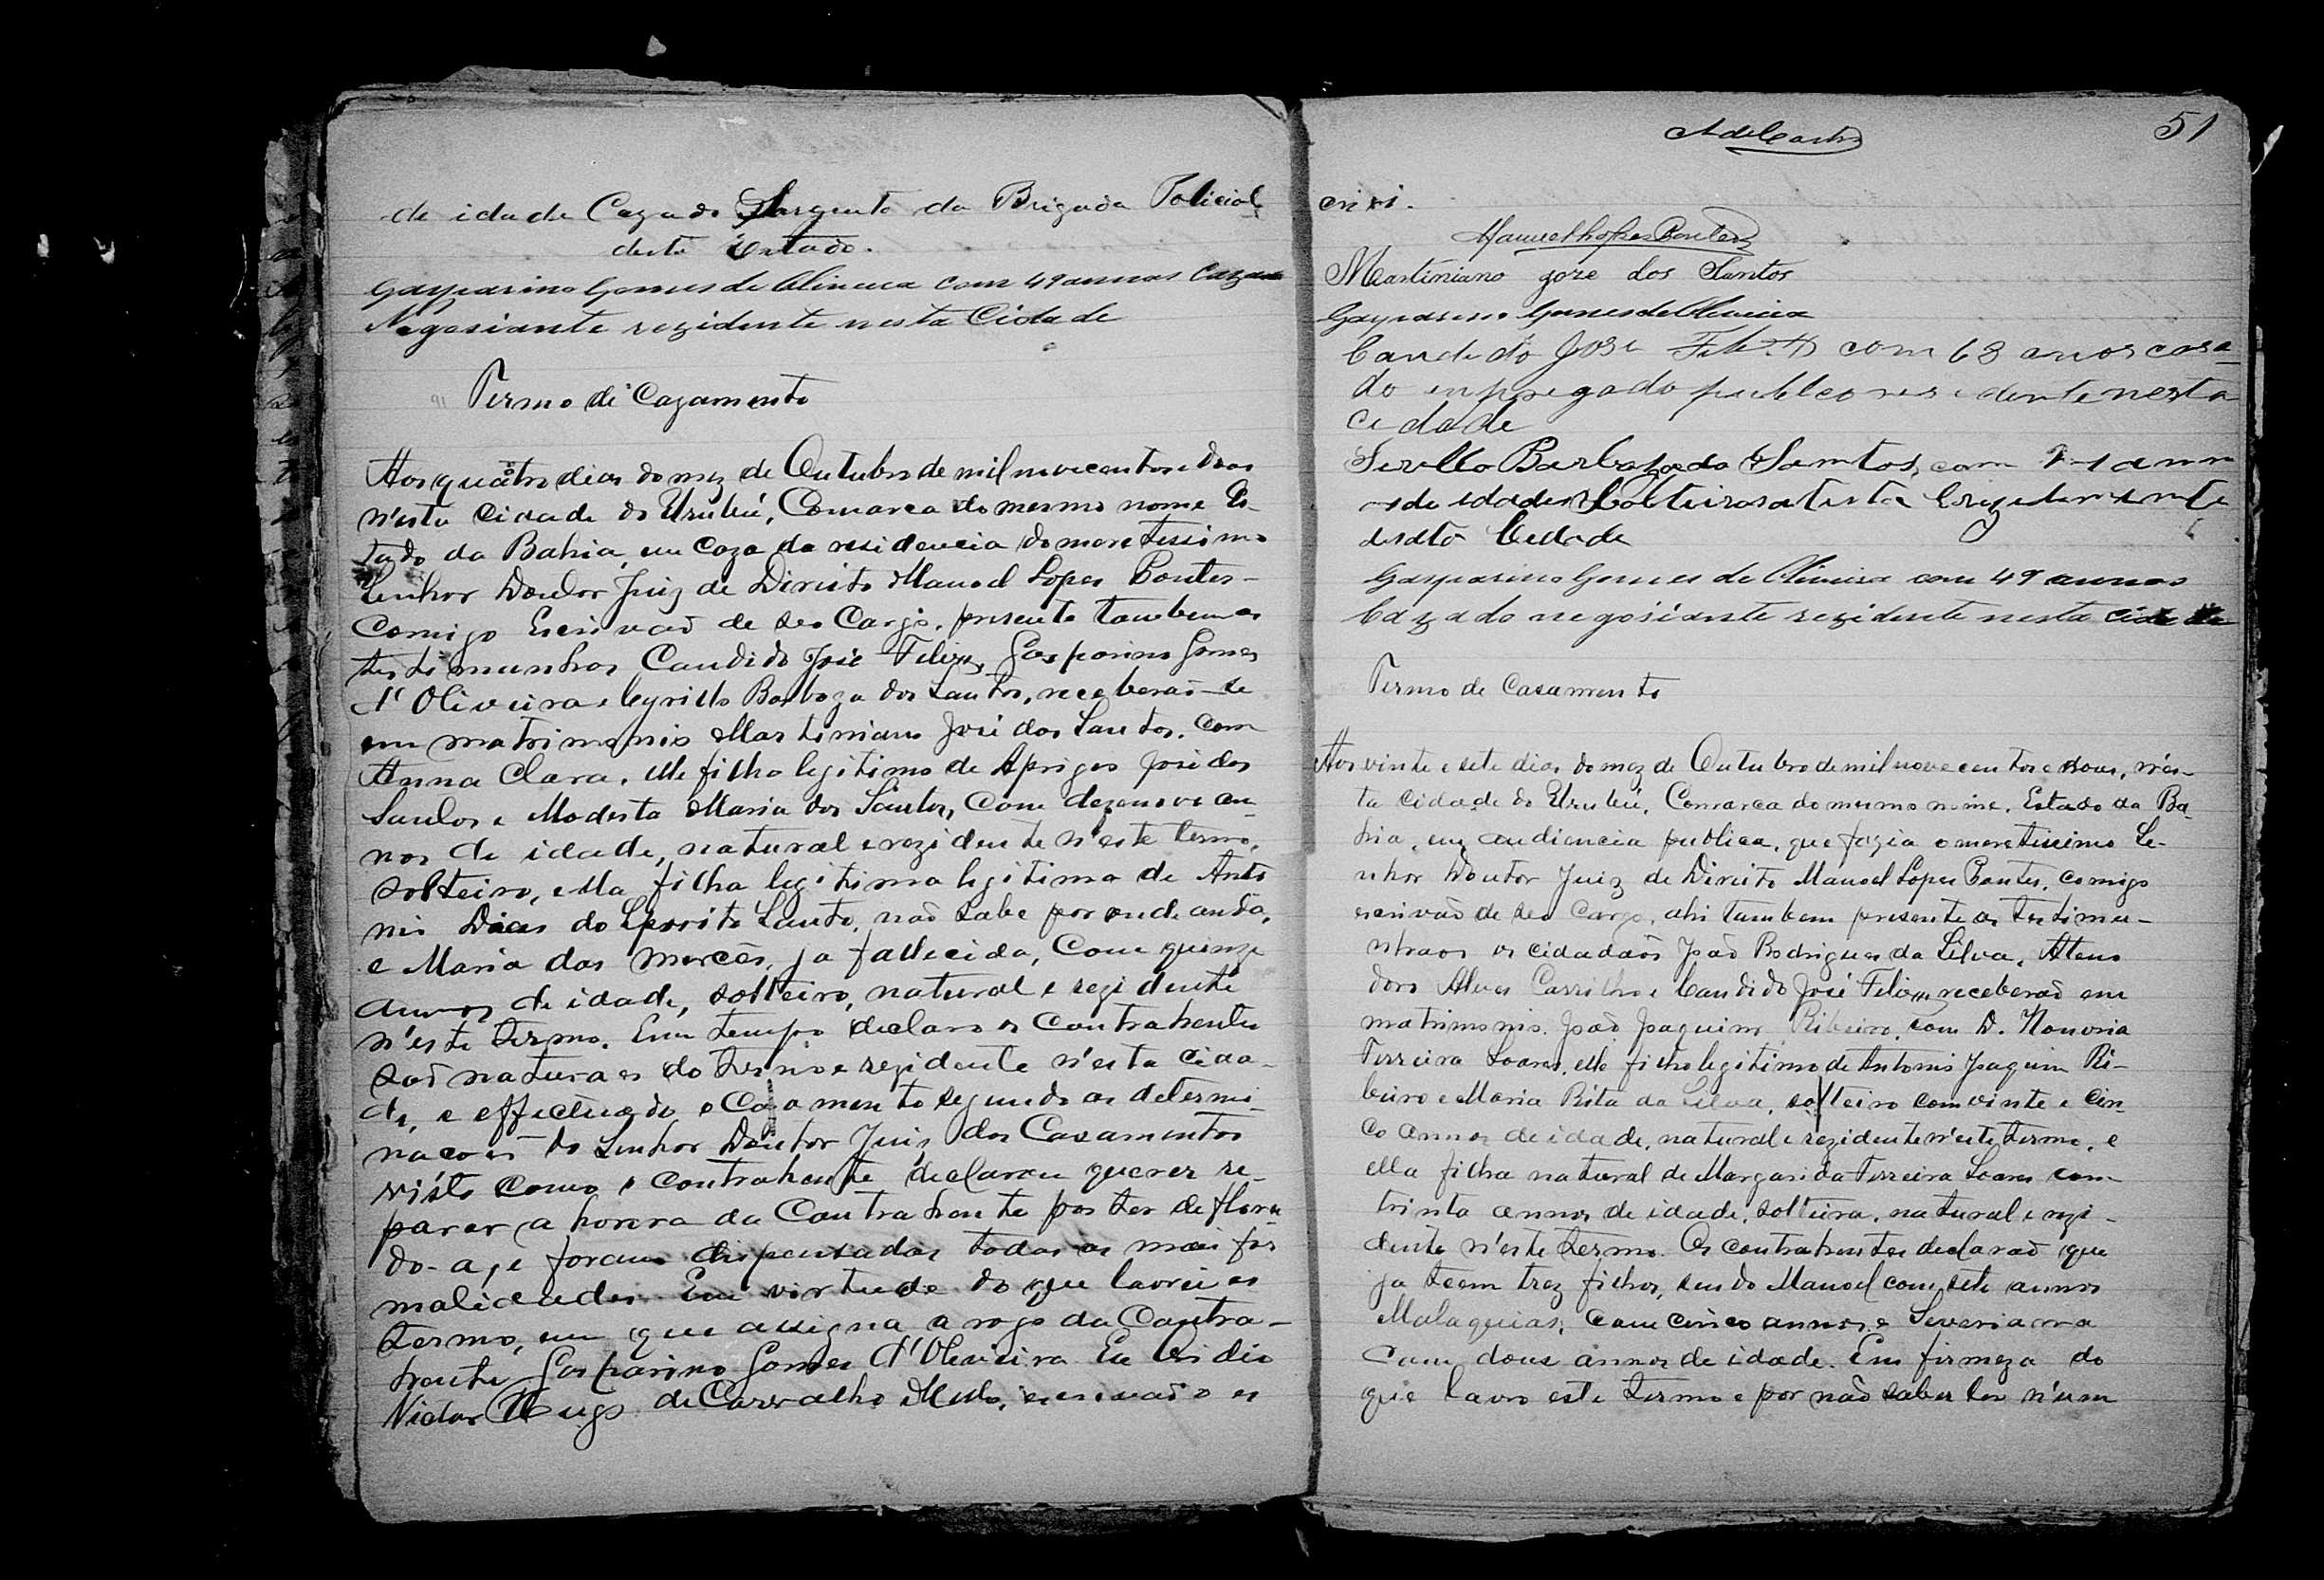 de idade Cazado Sargento da Brigada Policial
deste Estado.
Gasparino Gomes de Oliveira com 49 annos Cazado
Negosiante rezidente nesta Cidade
Termo de Cazamento
Aos quatro dias do mez de Outubro de mil novecentos e dous
n'esta cidade do Urubú, Comarca do mesmo nome Es-
tado da Bahia, em caza da residencia do meretissimo
Senhor Doutor Juiz de Direito Manoel Lopes Pontes-
Comigo Escrivaõ de seo Cargo, presente tambem as
testimunhas Candido José Felix, Gasparino Gomes
d'Oliveira e Cyrillo Barboza dos Santos, receberaõ-se
em matrimonio Martiniano José dos Santos, com
Anna Clara, elle filho legitimo de Aprigio José dos
Santos e Modesta Maria dos Santos, com dezenove an-
nos de idade, natural e rezidente n'este termo,
solteiro, ella filha legitima legitima de Anto
nio Dias do Espirito Santo, naõ sabe por onde anda,
e Maria das Mercês, ja fallecida, com quinze
annos de idade, solteiro, natural e rezidente
n'este termo. Em tempo declaro os contrahentes
saõ naturaes do termo e rezidente n'esta cida-
de, e effectuado o Cazamento segundo as determi-
nacoes do Senhor Doutor Juiz dos Casamentos
visto como o contrahente declarou querer re-
parar a honra da Contrahente por ter deflora
do-a, e foram dispensadas todas as mais for
malidades. Em virtude do que lavrei es
termo, em que assigna a rogo da Contra-
hente Gasparino Gomes d'Oliveira Eu
Victor Hugo de Carvalho Mello, escrivaõ o es
51
crivi.
Manuel Lopes Pontes
Martiniano joze dos Santos
Gasparino Gomes de Oliveira
Candido José Felix com 63 anos casa-
do enpregado publco residente nesta
cidade
Sirllo Barboza do Santos, com annos
de idade Solteiro
desta Cidade
Gasparino Gomes de Oliveira com 49 annos
Cazado negosiante rezidente nesta cidade
Termo de Casamento
Aos vinte e sete dias do mez de Outubro de mil novecentos e dous, n'es-
ta cidade do Urubú, Comarca do mesmo nome, Estado da Ba-
hia, em audiencia publica, que fazia o meretissimo Se-
nhor Doutor Juiz de Direito Manoel Lopes Pontes, comigo
escrivaõ de seo cargo, ahi tambem presente as testimu-
nhaos os cidadaõs Joaõ Rodrigues da Silva, Ateno
doro Alves Carrilho e Candido José Felix, receberaõ em
matrimonio. Joaõ Joaquim Ribeiro, com D. Honoria
Ferreira Soares, elle filho legitimo de Antonio Joaquim Ri-
beiro e Maria Rita da Silva, solteiro com vinte e cin-
co annos de idade, natural e rezidente n'este termo, e
ella filha natural de Margarida Ferreira Soares com
trinta annos de idade, solteira, natural e rezi-
dente n'este termo. Os contrahentes declaraõ que
ja teem trez filhos, sendo Manoel com sete annos
Malaquias, com cinco annos, e Severiana
com dous annos de idade. Em firmeza do
que lavro este termo e por naõ saber ler n'em